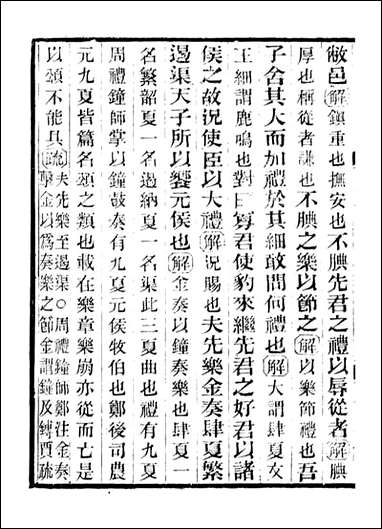 敝邑解鎮重也撫安也不腆先君之禮以辱從者解腆
厚也稱從者謙也不腆之樂以節之解以樂節禮也吾
子舍其大而加禮於其細敢問何禮也解大謂肆夏文
王細謂鹿鳴也對曰寡君使豹來繼先君之好君以諸
侯之故況使臣以大禮解況賜也夫先樂金奏肆夏繁
遏渠天子所以饗元侯也解金奏以鐘奏樂也肆夏一
名繁韶夏一名遏納夏一名渠此三夏曲也禮有九夏
周禮鐘師掌以鐘鼓奏有九夏元侯牧伯也鄭後司農
元九夏皆篇名頌之類也載在樂章樂崩亦從而亡是
以頌不能具疏夫先樂至遏渠○周禮鐘師鄭注金奏
擊金以爲奏樂之節金謂鐘及鎛賈疏